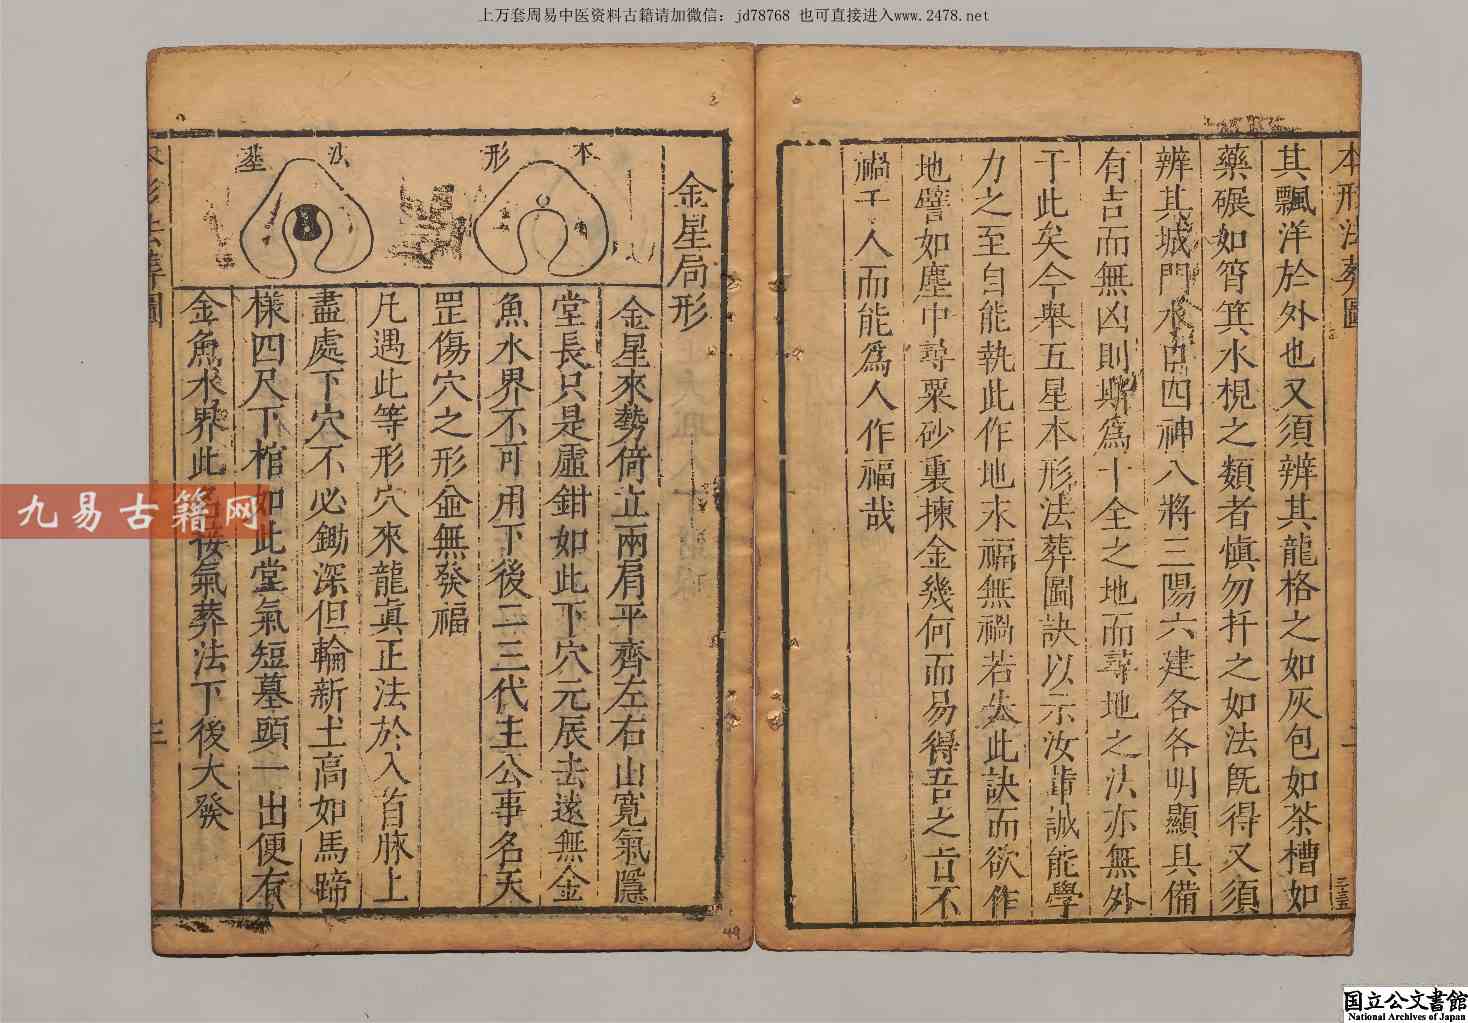 上万套周易中医资料古籍请加微信：jd78768 也可直接进入www.2478.net
本形法葬圖
其飄洋於外也又須辨其龍格之如灰包如茶槽如
藥碾如筲箕水梘之類者慎勿扦之如法既得又須
辨其城門水由四神八將三陽六建各各明顯具備
有吉而無凶則斯為十全之地而尋地之法亦無外
于此矣今舉五星本形法葬圖訣以示汝輩誠能學
力之至自能執此作地求福無禍若失此訣而欲作
地譬如塵中尋粟砂裏揀金幾何而易得吾之言不
禍于人而能爲人作福哉
金星局形
本形
法葬
金星來勢倚立兩肩平齊左右山寬氣隱
堂長只是虛鉗如此下穴元辰去遠無金
魚水界不可用下後二三代主公事名天
罡傷穴之形並無發福
凡遇此等形穴來龍真正法於入首脉上
盡處下穴不必鋤深但輪新土高如馬蹄
樣四尺下棺如此堂氣短墓頭一出便有
金魚水界此名接氣葬法下後大發
本形法葬圖
三
九易古籍网
49
国立公文書館
National Archives of Japan